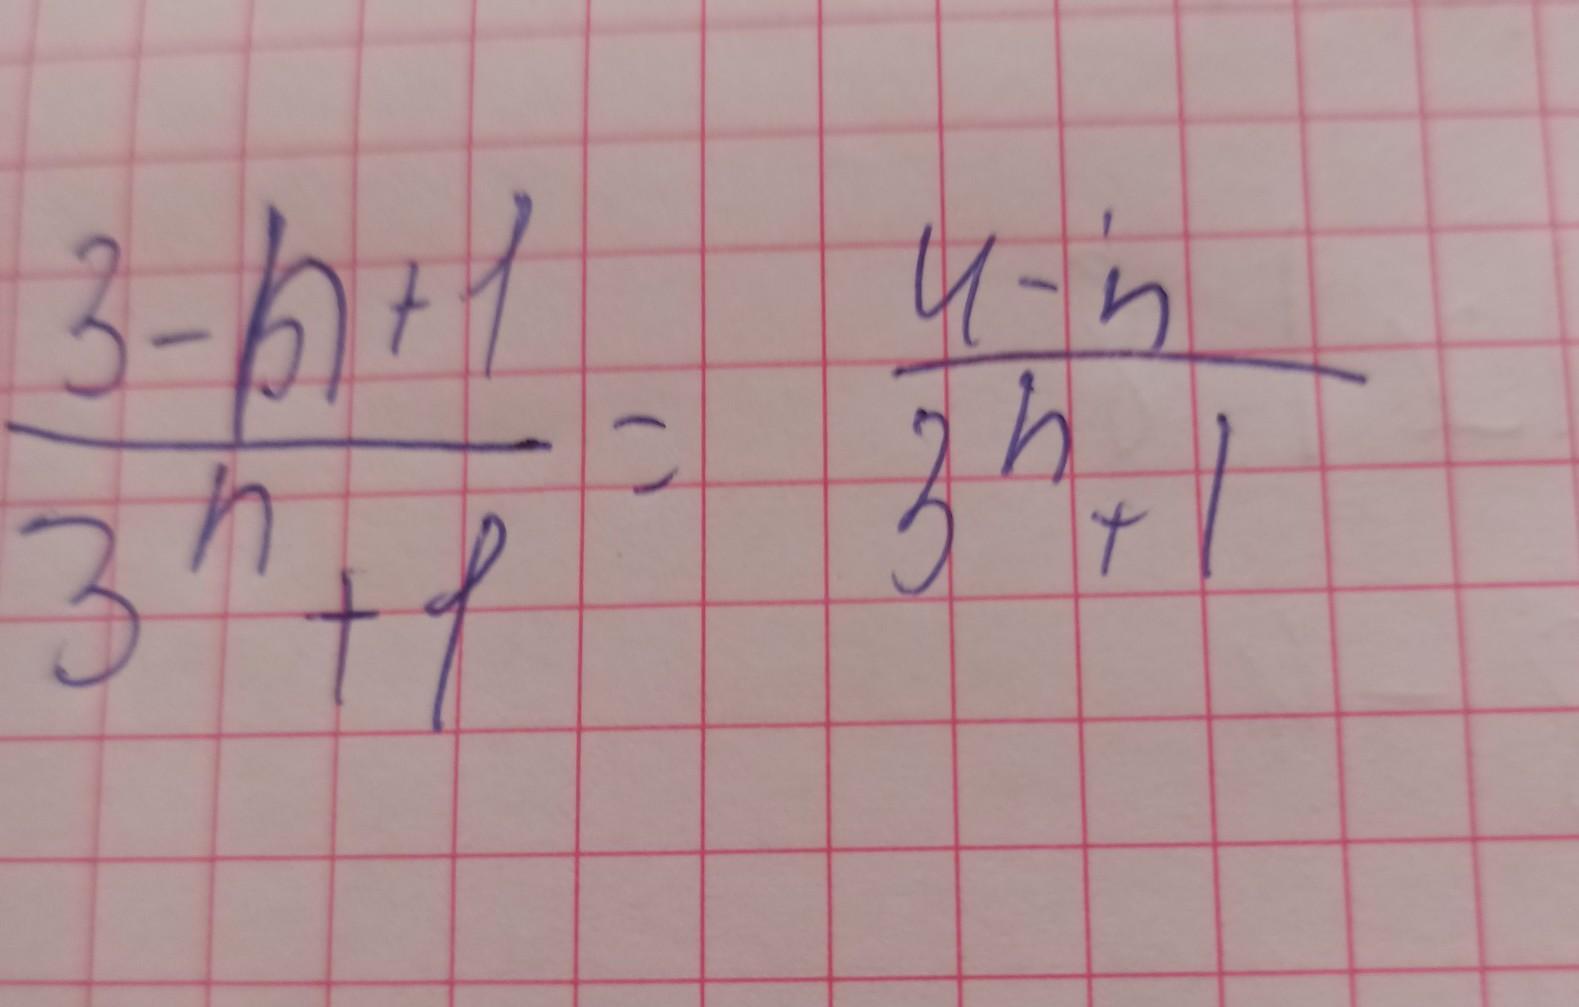 3-n+1 / 3^n+1 = 4-n / 3^n+1